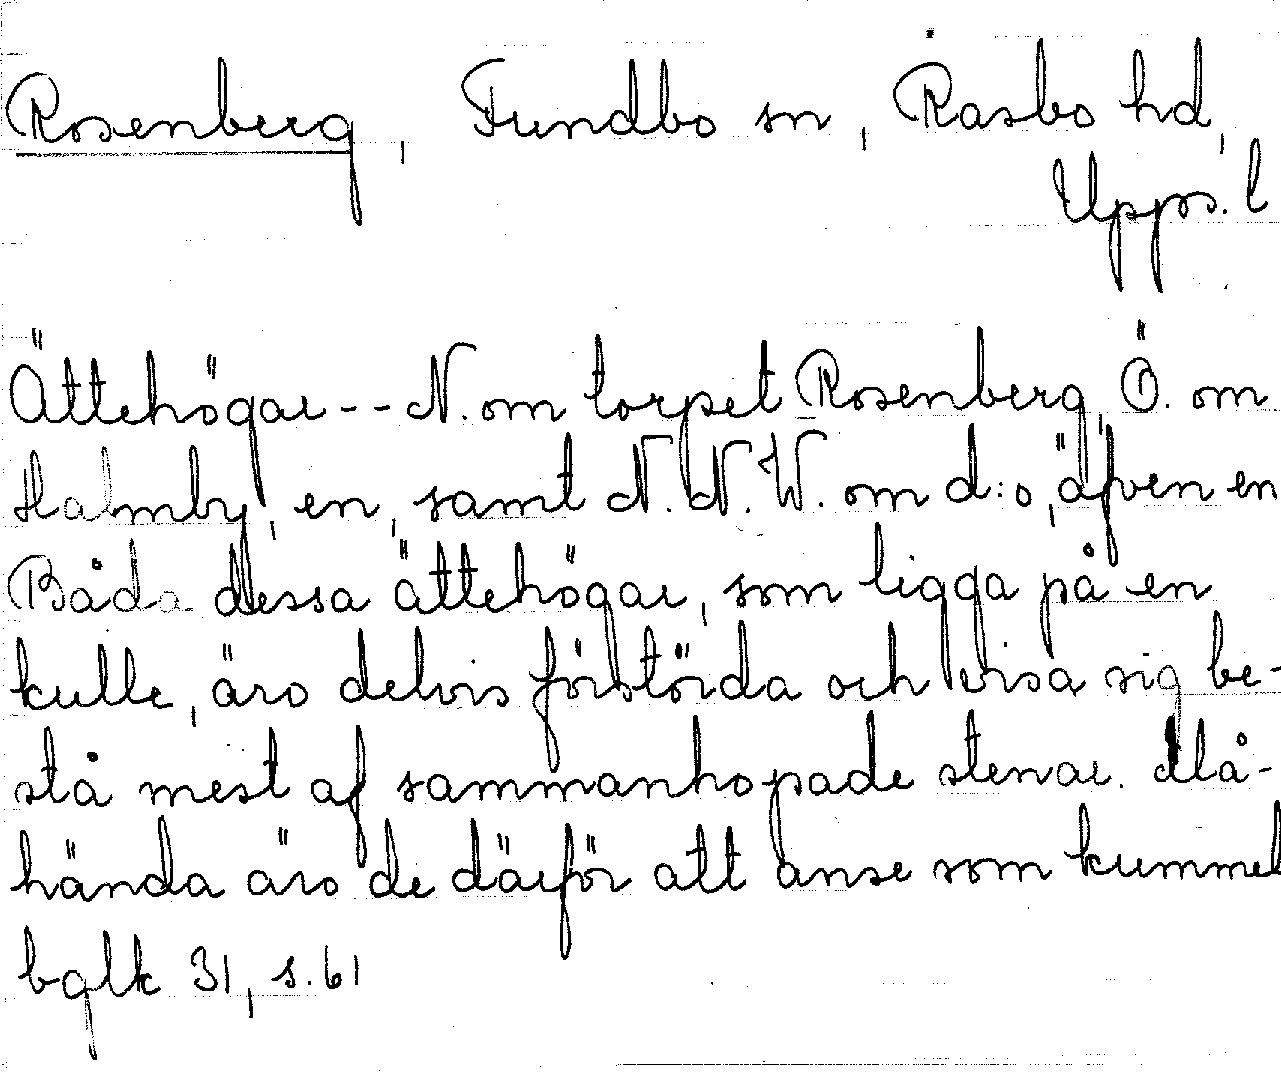 Rosenberg, Fundbo sn, Rasbo hd,
Upps. l
Ättehögar -- N. om torpet Rosenberg, Ö. om
Halmby, en, samt N.N.W. om d:o, äfven en
Båda dessa ättehögar, som ligga på en
kulle, äro delvis förstörda och visa sig be-
stå mest af sammanhopade stenar. Må-
hända äro de därför att anse som kummel
bglk 31, s. 61